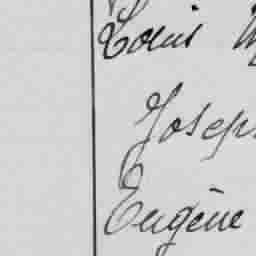 Louis
Joseph
Eugène